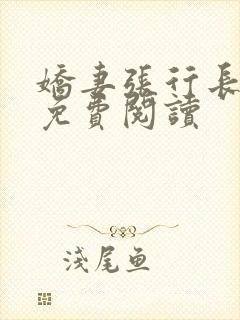 嬌妻張行長
免費閱讀
淺尾魚